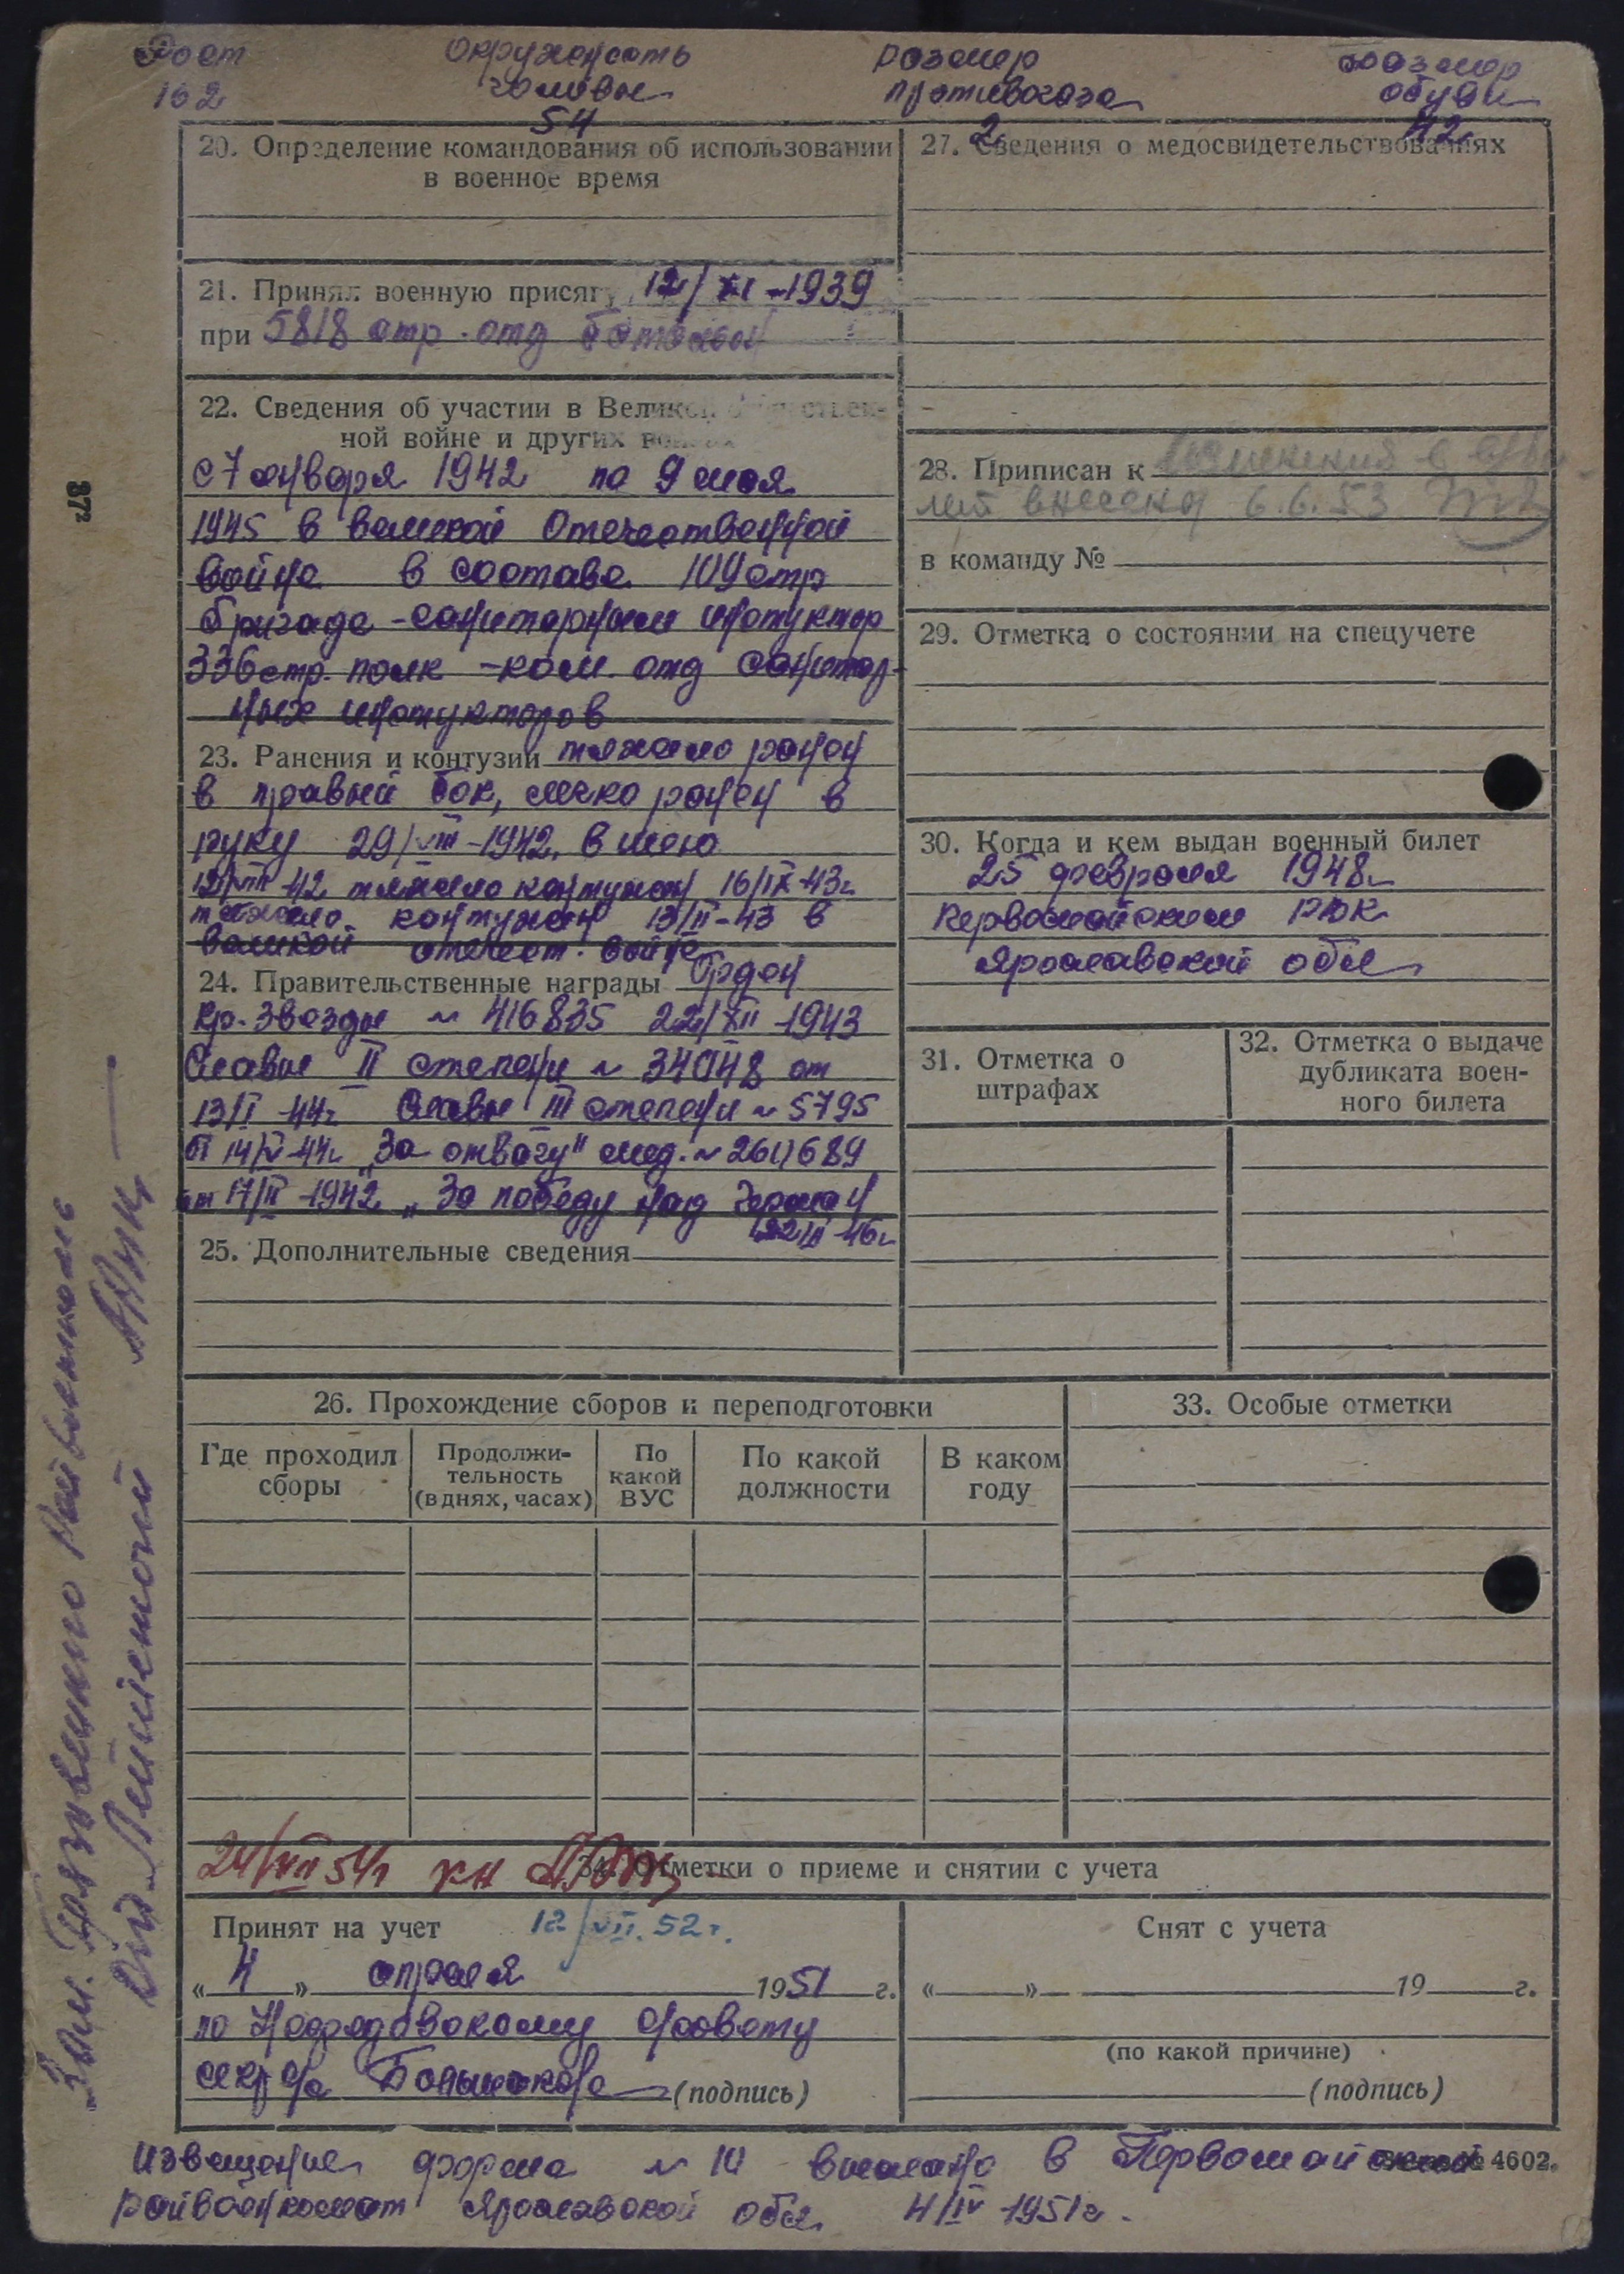 Рост
162
окружность
головы
54
размер
противогаза
2
размер
обуви
42
20. Определение командования об использовании
в военное время
21. Принял военную присягу 12/XI-1939
при 5818 отр. отд батальон
22. Сведения об участии в Великой Отечествен-
ной войне и других войнах
с 7 января 1942 по 9 мая
1945 в великой Отечественной
войне в составе 109 стр
бригаде - санитарным инструктор
336 стр. полк - ком. отд санитар-
ных инструкторов
23. Ранения и контузии тяжело ранен
в правый бок, легко ранен в
руку 29/VIII-1942, в шею
12/VIII-42 тяжело контужен 16/IX-43г
тяжело контужен 13/II-43 в
великой отечест. войне
24. Правительственные награды Орден
Кр. Звезды № 416835 22/XII-1943
Славы II степени № от
13/II-44г Славы III степени № 5795
от 14/V-44г „За отвагу" мед. №
от 17/III-1942 „За победу над Герман
25. Дополнительные сведения
26. Прохождение сборов и переподготовки
Где проходил сборы
Продолжи-
тельность
(в днях, часах)
По
какой
ВУС
По какой
должности
В каком
году
27. Сведения о медосвидетельствованиях
28. Приписан к
внесены 6.6.53
в команду №
29. Отметка о состоянии на спецучете
30. Когда и кем выдан военный билет
25 февраля 1948г
Первомайским РВК
Ярославской обл
31. Отметка о
штрафах
32. Отметка о выдаче
дубликата воен-
ного билета
33. Особые отметки
24/VII 54г
34. Отметки о приеме и снятии с учета
Принят на учет 12/VII. 52 г.
« 4 » апреля 1951 г.
по совету
(подпись)
Снят с учета
« » 19 г.
(по какой причине)
(подпись)
извещение форма № 10 выслано в Первомайский
райвоенкомат Ярославской обл 4/IV 1951г.
4602.
37²